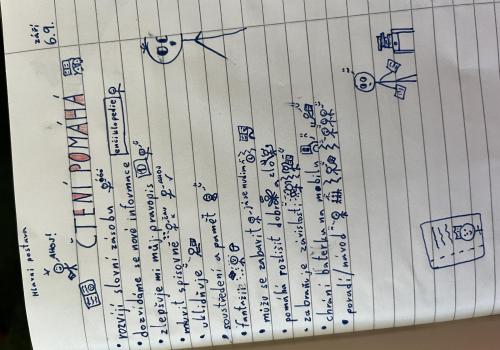 Hlavní postava
AHOJ!
září
6.9.
ČTENÍ POMÁHÁ
• rozvíjí slovní zásobu
• dozvídáme se nové informace
enciklopedie
• zlepšuje mi můj pravopis
• mluvit spisovně
AHOJ
• uklidňuje
• soustředění a paměť
• fantazii
• můžu se zabavit
já se nudím
• pomáhá rozlišit dobro a zlo
• zabraňuje závislosti
• chrání
na mobilu
• poradí/návod